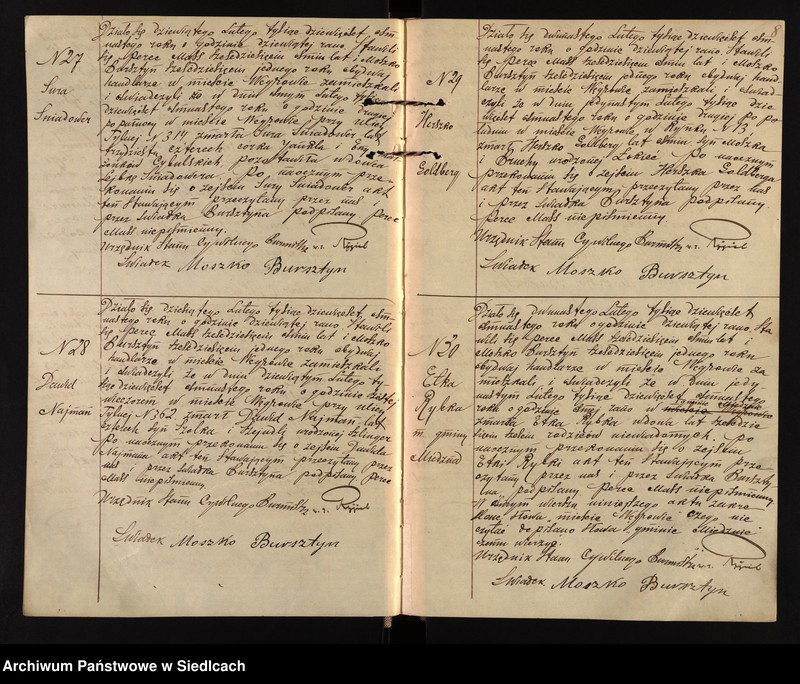 N27
Sura
Śniadower
Działo się dziewiątego Lutego tysiąc dziewięćset ośm-
nastego roku o godzinie dziewiątej rano. Stawili
się Perec Mass sześćdziesięciu ośmiu lat i Moszko
Bursztyn sześćdziesięciu jednego roku obydwaj
handlarze w mieście Węgrowie zamieszkali
i świadczyli że w dniu ósmym Lutego tysiąc
dziewięćset ośmnastego roku o godzinie drugiej
po południu w mieście Węgrowie przy ulicy
Tylnej N 314 zmarła Sura Śniadower lat
trzydziestu czterech córka Jankla i
małżonków Cybulskich, pozostawiła wdowca
Lejbkę Śniadowera. Po naocznym prze-
konaniu się o zejściu Sury Śniadower akt
ten stawającym przeczytany przez nas i
przez świadka Bursztyna podpisany Perec
Mass niepiśmienny.
Urzędnik Stanu Cywilnego Burmistrz
Świadek Moszko Bursztyn
N28
Dawid
Najman
Działo się dziesiątego Lutego tysiąc dziewięćset ośm-
nastego roku o godzinie dziewiątej rano. Stawili
się Perec Mass sześćdziesięciu ośmiu lat i Moszko
Bursztyn sześćdziesięciu jednego roku obydwaj
handlarze w mieście Węgrowie zamieszkali
i świadczyli że w dniu dziewiątym Lutego ty-
siąc dziewięćset ośmnastego roku o godzinie szóstej
wieczorem w mieście Węgrowie przy ulicy
Tylnej N 362 zmarł Dawid Najman lat
czterech syn Szolka i Szejndli urodzonej
Po naocznym przekonaniu się o zejściu Dawida
Najmana akt ten stawającym przeczytany przez
nas i przez świadka Bursztyna podpisany Perec
Mass niepiśmienny
Urzędnik Stanu Cywilnego Burmistrz
Świadek Moszko Bursztyn
8
N29
Herszko
Goldberg
Działo się dwunastego Lutego tysiąc dziewięćset ośm-
nastego roku o godzinie dziewiątej rano. Stawili
się Perec Mass sześćdziesięciu ośmiu lat i Moszko
Bursztyn sześćdziesięciu jednego roku obydwaj hand-
larze w mieście Węgrowie zamieszkali i świad-
czyli że w dniu jedynastym Lutego tysiąc dzie-
więćset ośmnastego roku o godzinie drugiej po po-
łudniu w mieście Węgrowie, w Rynku N 13,
zmarł Herszko Goldberg lat ośmiu syn Moszka
i Bruchy urodzonej Lokiec. Po naocznym
przekonaniu się o zejściu Herszka Goldberga
akt ten stawającym przeczytany przez nas
i przez świadka Bursztyna podpisany.
Perec Mass niepiśmienny.
Urzędnik Stanu Cywilnego Burmistrz
Świadek Moszko Bursztyn
N30
Etka
Rybka
m. gminy
Miedzna
Działo się dwunastego Lutego tysiąc dziewięćset
ośmnastego roku o godzinie dziewiątej rano. Sta-
wili się Perec Mass sześćdziesięciu ośmiu lat i
Moszko Bursztyn sześćdziesięciu jednego roku
obydwaj handlarze w mieście Węgrowie za-
mieszkali i świadczyli że w dniu jedy-
nastym Lutego tysiąc dziewięćset ośmnastego
roku o godzinie rano w mieście Węgrowie
zmarła Etka Rybka wdowa lat sześćdzie-
sięciu siedmiu rodziców niewiadomych. Po
naocznym przekonaniu się o zejściu
Etki Rybki akt ten stawającym prze-
czytany przez nas i przez świadka Burszty-
na podpisany Perec Mass niepiśmienny
W ósmym wierszu niniejszego aktu zakre-
ślone słowa „mieście Węgrowie" czego nie
czytać dopisano słowa „gminie Miedzna"
czemu wierzyć.
Urzędnik Stanu Cywilnego Burmistrz
Świadek Moszko Bursztyn
Archiwum Państwowe w Siedlcach